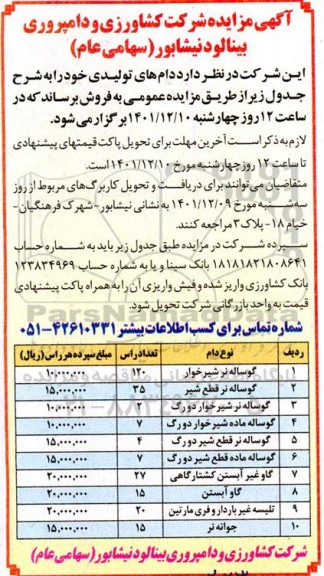 آگهی مزایده شرکت کشاورزی و دامپروری
بینالود نیشابور (سهامی عام)
این شرکت در نظر دارد دام های تولیدی خود را به شرح
جدول زیر از طریق مزایده عمومی به فروش برساند که در
ساعت ۱۲ روز چهارشنبه ۱۴۰۱/۱۲/۱۰ برگزار می شود.
لازم به ذکر است آخرین مهلت برای تحویل پاکت قیمتهای پیشنهادی
تا ساعت ۱۲ روز چهارشنبه مورخ ۱۴۰۱/۱۲/۱۰ است.
متقاضیان می توانند برای دریافت و تحویل کاربرگ های مربوط از روز
سه شنبه مورخ ۱۴۰۱/۱۲/۰۹ به نشانی نیشابور- شهرک فرهنگیان-
خیام ۱۸ - پلاک ۳ مراجعه کنند.
سپرده شرکت در مزایده طبق جدول زیر باید به شماره حساب
۱۸۱۸۱۸۲۱۸۰۸۶۴۱ بانک سینا و یا به شماره حساب ۱۲۳۸۳۴۹۶۹
بانک کشاورزی واریز شده و فیش واریزی آن را به همراه پاکت پیشنهادی
قیمت به واحد بازرگانی شرکت تحویل شود.
شماره تماس برای کسب اطلاعات بیشتر ۴۲۶۱۰۳۳۱-۰۵۱
ردیف نوع دام تعداد راس مبلغ سپرده هر راس (ریال)
۱ گوساله نر شیرخوار ۱۲۰ ۱۰,۰۰۰,۰۰۰
۲ گوساله نر قطع شیر ۳۵ ۱۵,۰۰۰,۰۰۰
۳ گوساله نر شیرخوار دورگ ۷ ۱۰,۰۰۰,۰۰۰
۴ گوساله ماده شیرخوار دورگ ۷ ۱۰,۰۰۰,۰۰۰
۵ گوساله نر قطع شیر دورگ ۴ ۱۵,۰۰۰,۰۰۰
۶ گوساله ماده قطع شیر دورگ ۷ ۱۵,۰۰۰,۰۰۰
۷ گاو غیر آبستن کشتارگاهی ۲۷ ۲۰,۰۰۰,۰۰۰
۸ گاو آبستن ۱۵ ۲۰,۰۰۰,۰۰۰
۹ تلیسه غیر باردار و فری مارتین ۲۰ ۲۰,۰۰۰,۰۰۰
۱۰ جوانه نر ۱۵ ۱۵,۰۰۰,۰۰۰
شرکت کشاورزی و دامپروری بینالود نیشابور (سهامی عام)